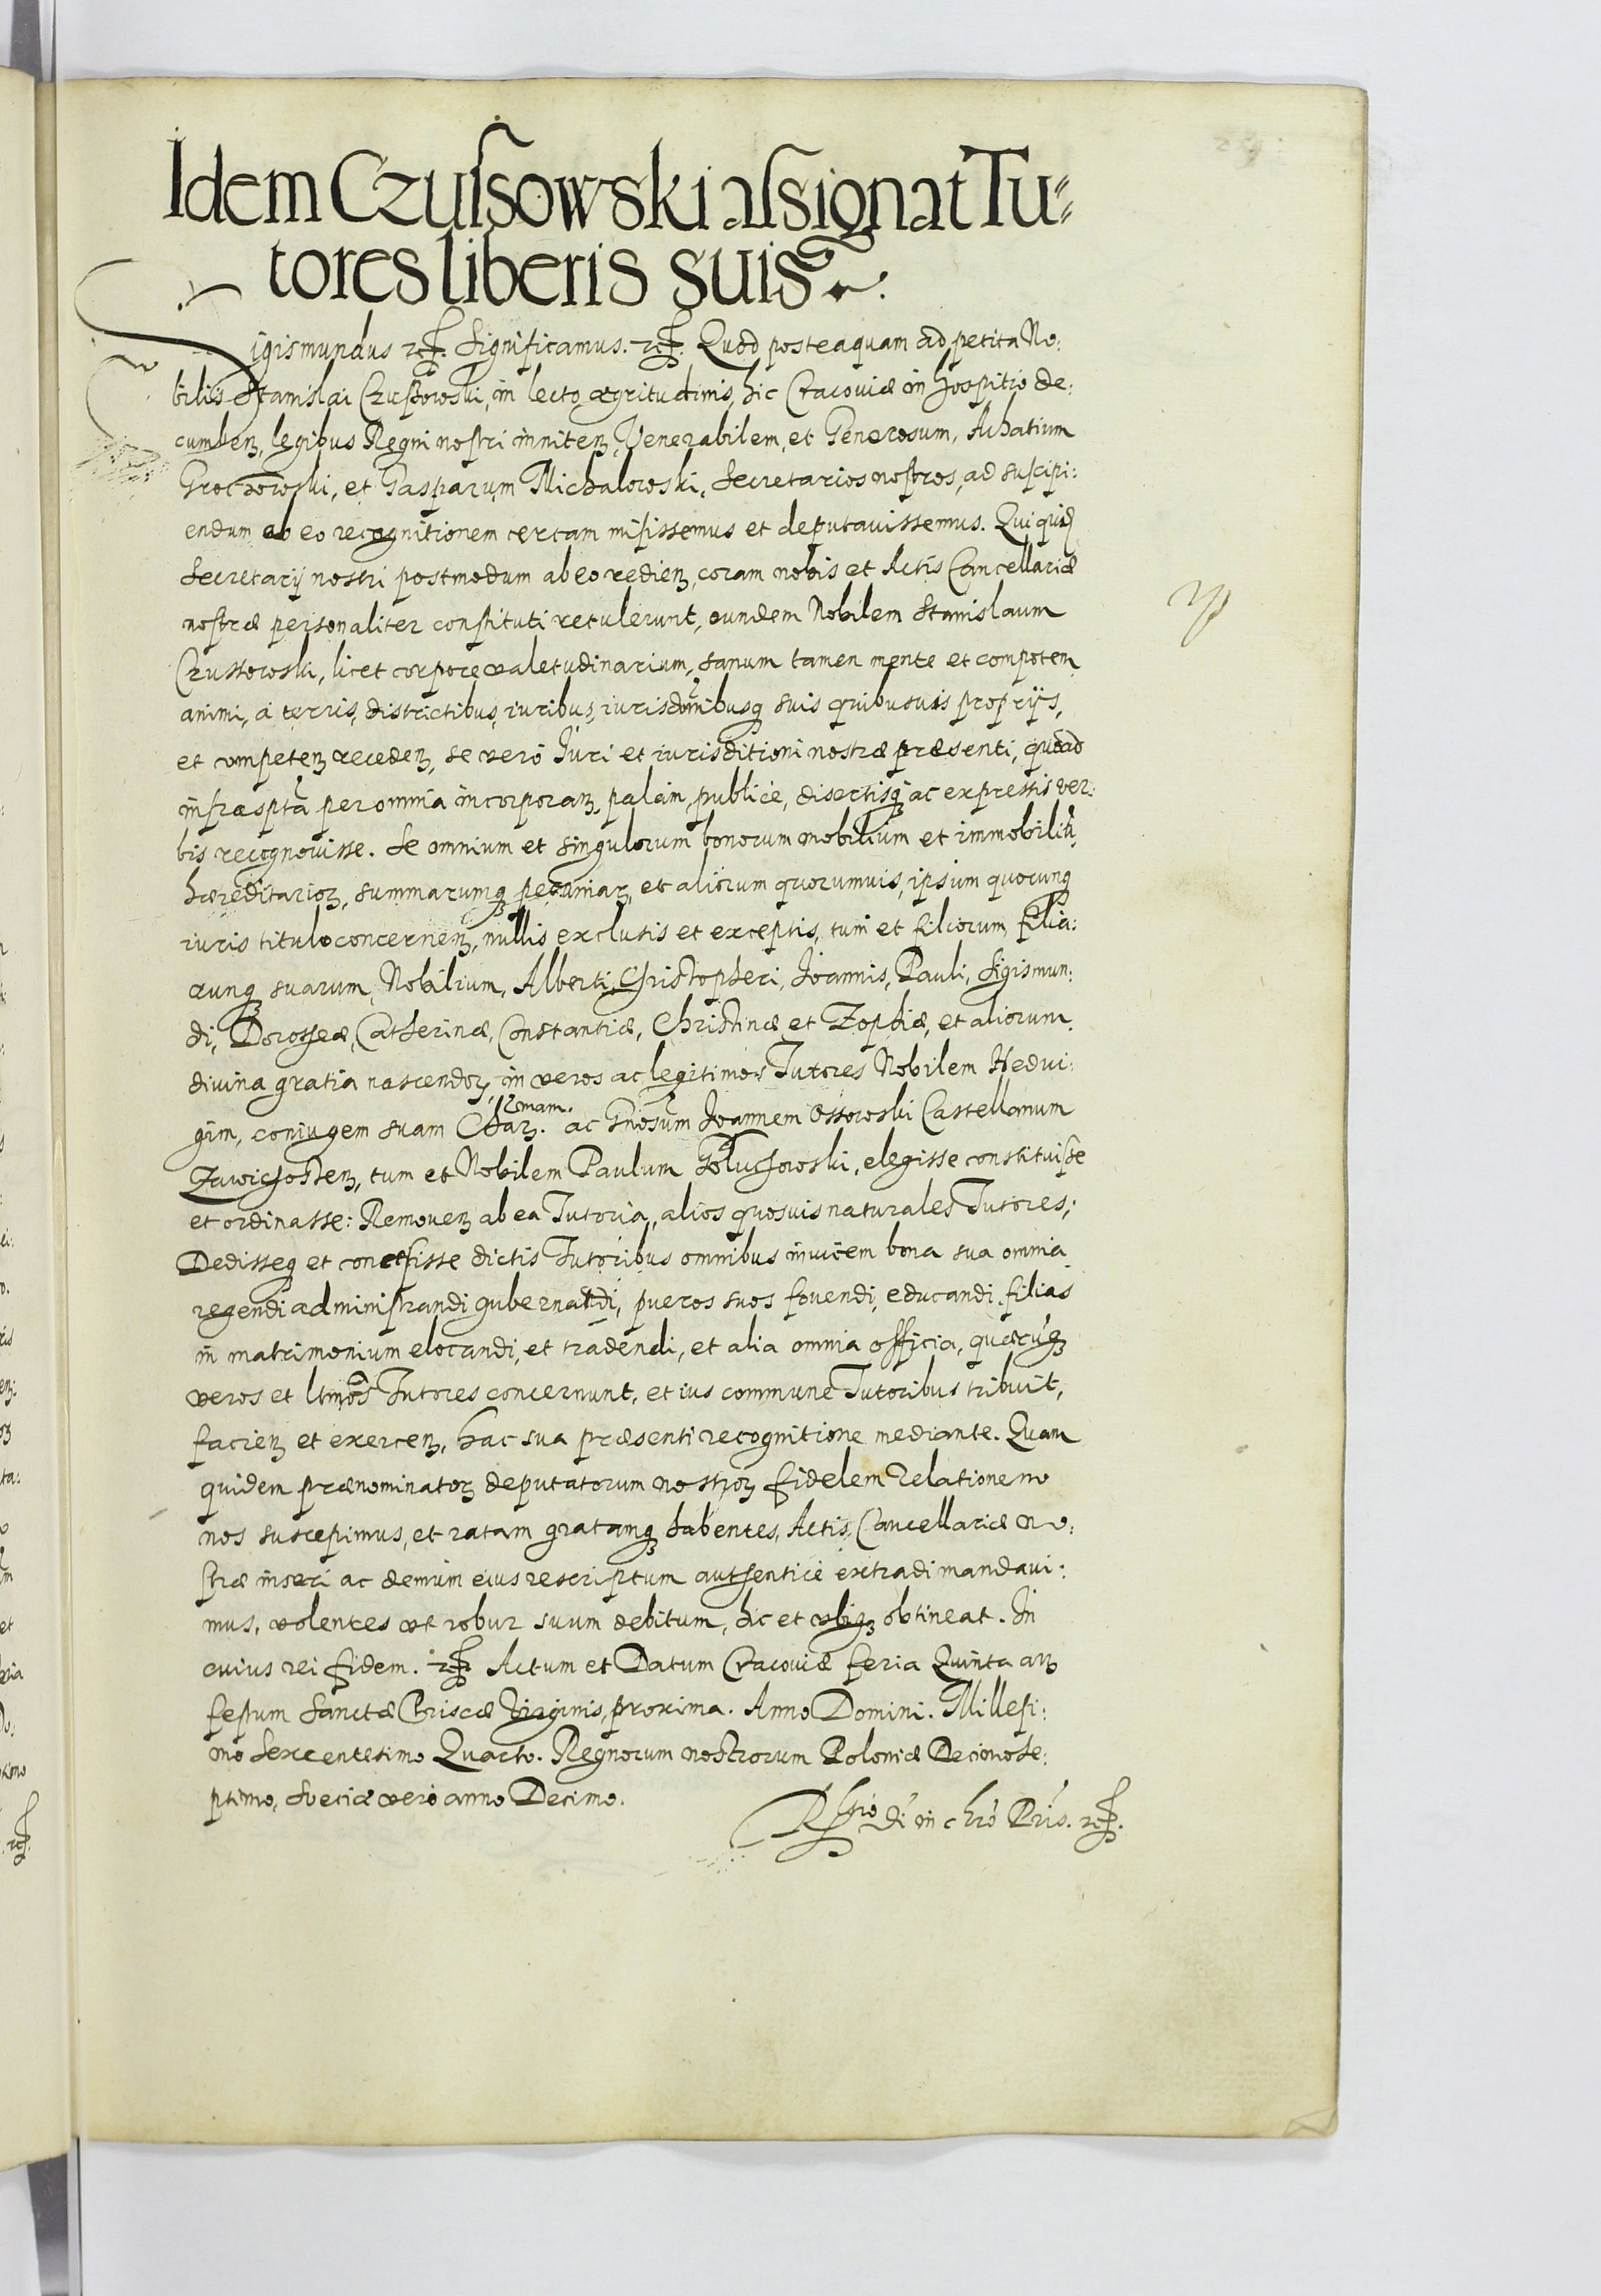 Idem Czussowski assignat Tu=
tores liberis suis.
Sigismundus etc. Significamus. etc. Quod posteaquam ad petita No:
bilis Stanislai Czußowski, in lecto ægritudinis, hic Cracoviæ in hospitio de:
cumbenꝫ, legibus Regni nostri innitenꝫ, Venerabilem, et Generosum, Achatium
Grochowski, et Gasparum Michalowski, Secretarios nostros, ad suscipi:
endum ab eo recognitionem certam misissemus et deputavissemus. Qui quiđ
Secretarij nostri postmodum ab eo redienꝫ, coram nobis et Actis Cancellariæ
nostræ personaliter constituti retulerunt, eundem Nobilem Stanislaum
Czussowski, licet corpore valetudinarium, sanum tamen mente et compotem
animi, à terris, districtibus, iuribus, iurisdonibusq suis quibusvis proprijs,
et competenꝫ recedenꝫ, se verò Iuri et iurisditioni nostræ præsenti, quoad
infrasptà per omnia incorporanꝫ, palàm, publicè, disertisq ac expressis ver:
bis recognovisse. Se omnium et singulorum bonorum mobilium et immobiliũ,
hæreditarioꝝ, summarumq pecuniaꝝ, et aliorum quorumvis, ipsum quocunq
iuris titulo concernenꝫ, nullis exclusis et exceptis, tum et filiorum, filia:
rumq suarum, Nobilium, Alberti, Christopheri, Ioannis, Pauli, Sigismun:
di, Dorotheæ, Catherinæ, Constantiæ, Christinæ et Zophiæ, et aliorum
divina gratia nascendoꝝ, in veros ac legitimos Tutores Nobilem Hedvi:
gim, coniugem suam Chaꝝ.mam. ac Gnosum Ioannem Ossowski Castellanum
Zawichostenꝫ, tum et Nobilem Paulum Goluchowski, elegisse constituisse
et ordinasse: Removenꝫ ab ea Tutoria, alios quosvis naturales Tutores;
Dedisseq et concessisse dictis Tutoribus omnibus invicem bona sua omnia
regendi administrandi gubernandi, pueros suos fovendi, educandi, filias
in matrimonium elocandi, et tradendi, et alia omnia officia, quæcũq
veros et ltmos Tutores concernunt, et ius commune Tutoribus tribuit,
facienꝫ et exercenꝫ, hac sua præsenti recognitione mediante. Quam
quidem prænominatoꝝ deputatorum nostroꝝ fidelem relationem
nos suscepimus, et ratam gratamq habentes, Actis, Cancellariæ no:
stræ inseri ac demùm eius rescriptum authenticè extradi mandavi:
mus, volentes vt robur suum debitum, hic et vbiq obtineat. In
cuius rei fidem. etc. Actum et Datum Cracoviæ feria Quinta anꝫ
festum Sanctæ Priscæ Virginis, proxima. Anno Domini. Millesi:
mo Sexcentesimo Quarto. Regnorum nostrorum Poloniæ Decimose:
ptimo, Sveciæ verò anno Decimo.
Rltio Di in chro Pris. etc.